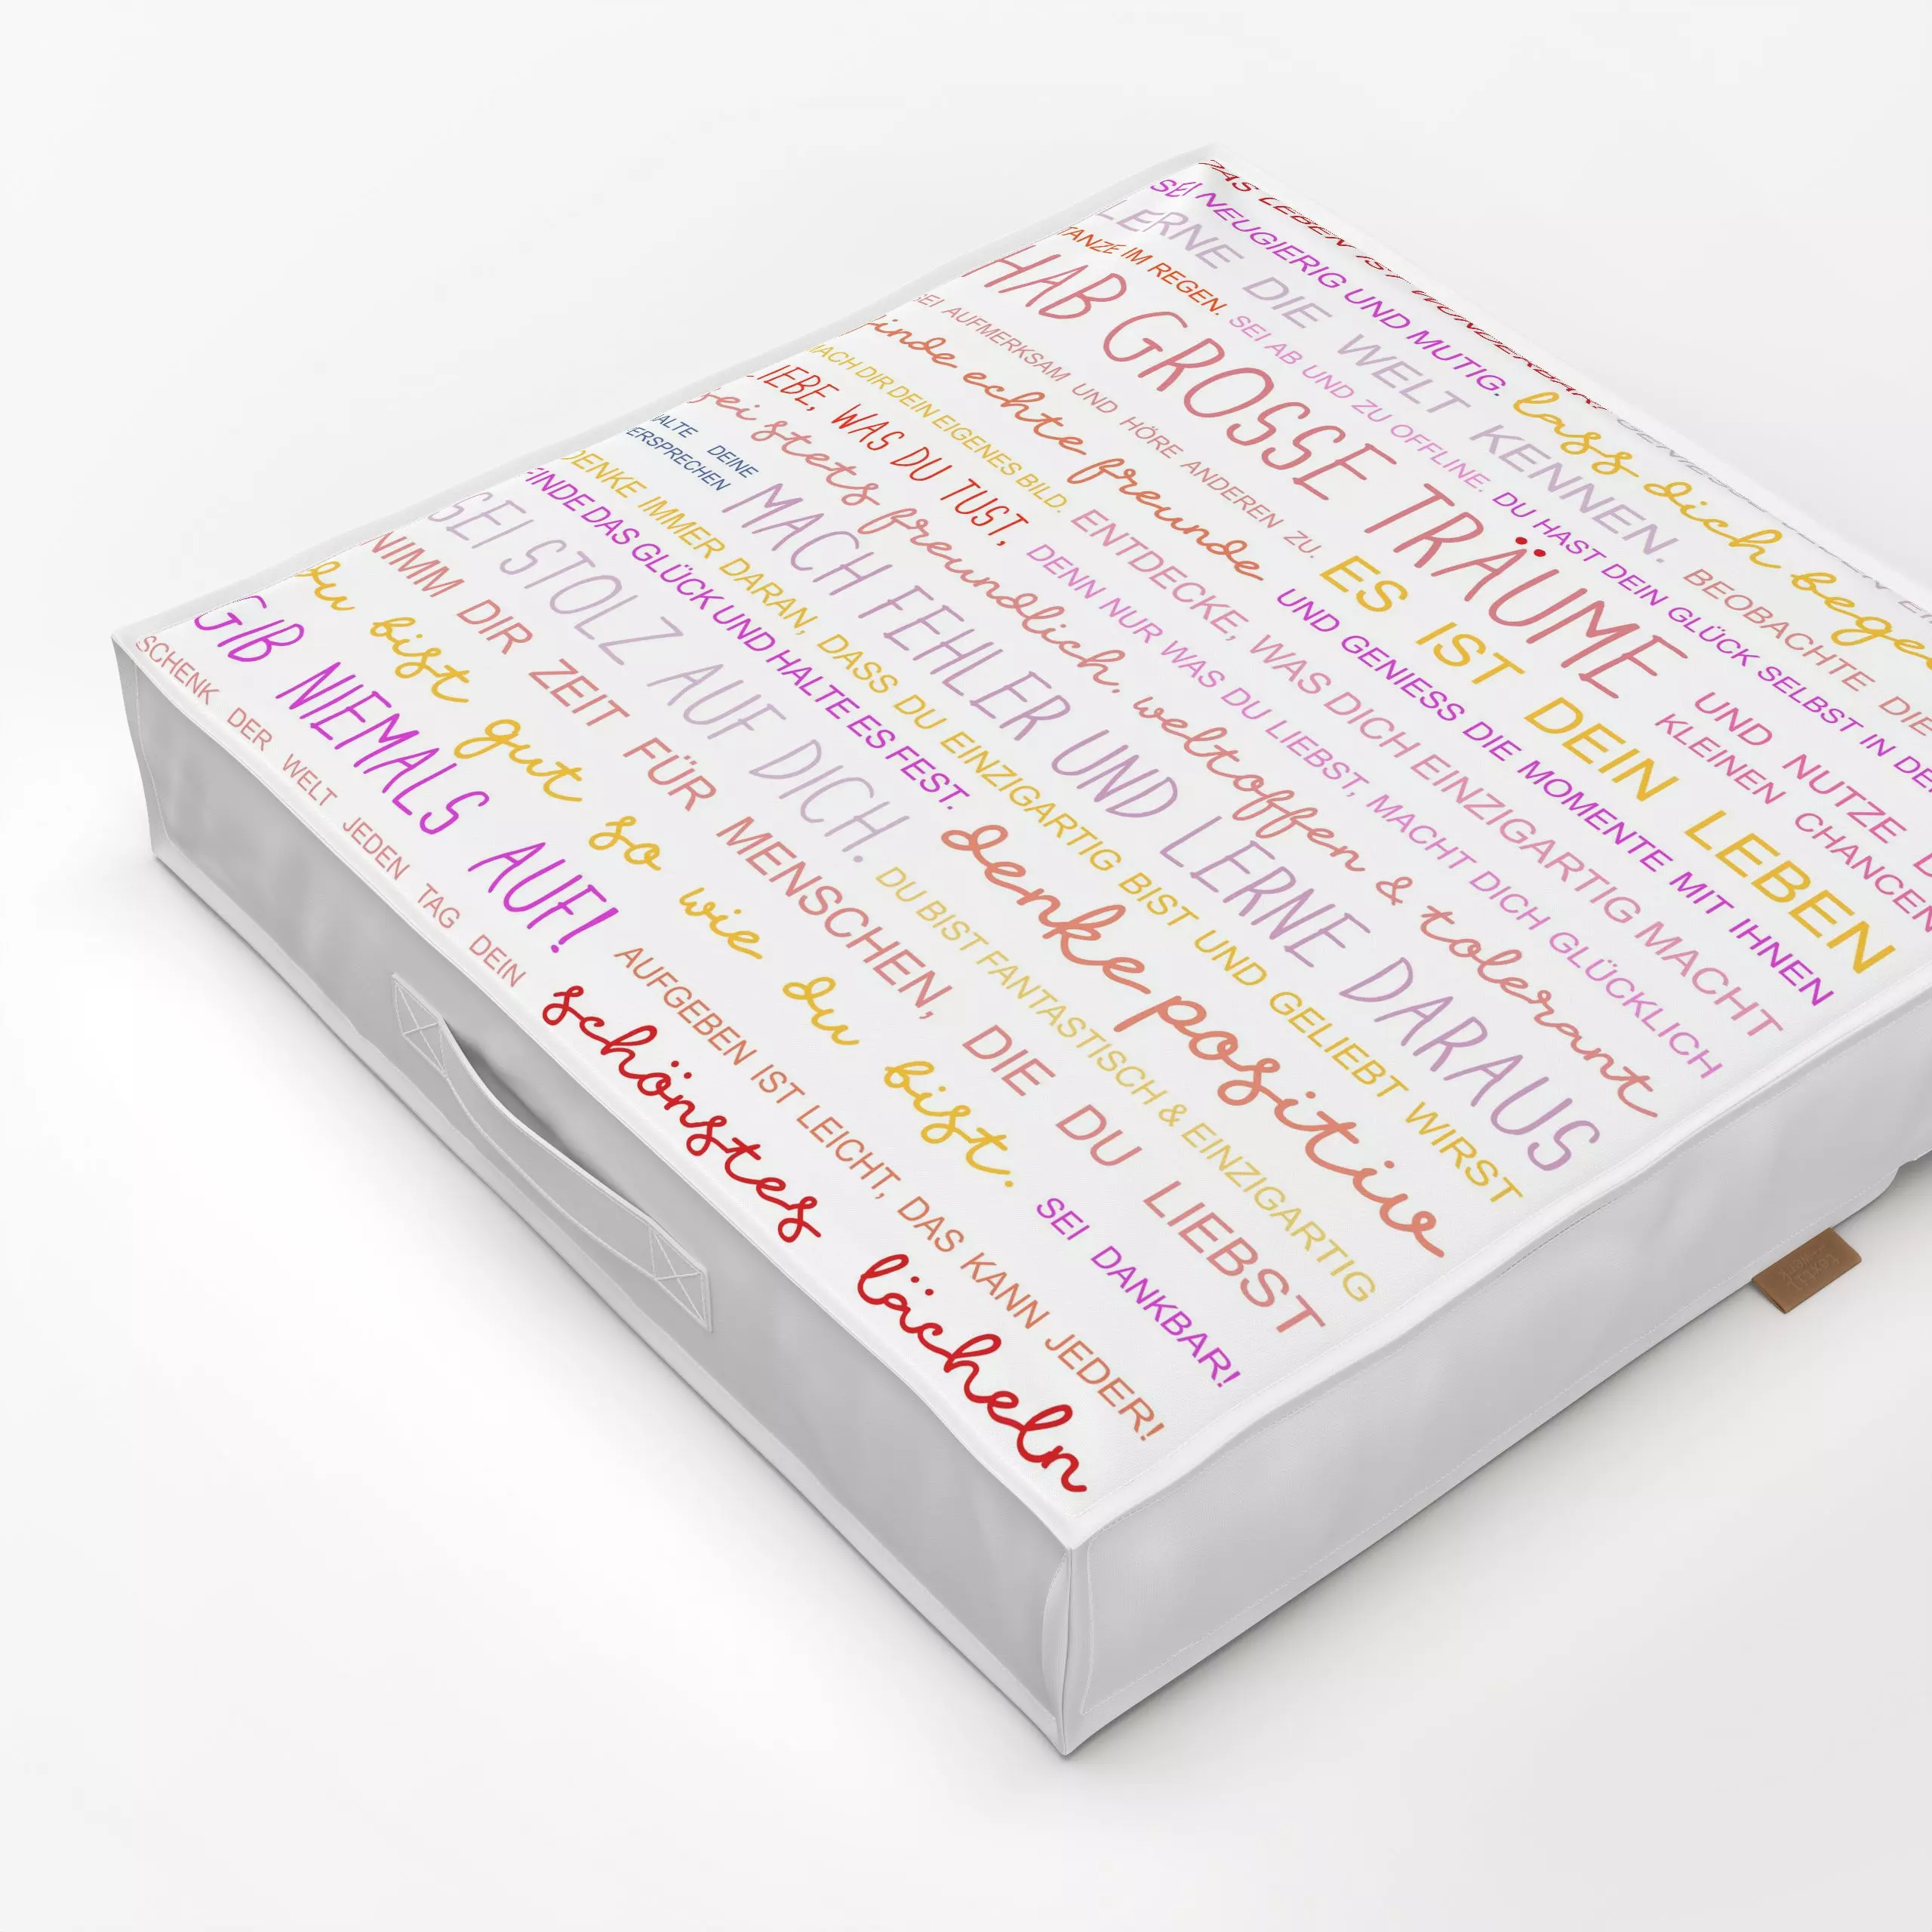 DAS LEBEN IST WUNDERBAR!
SEI NEUGIERIG UND MUTIG. lass dich
LERNE DIE WELT KENNEN. BEOBACHTE DIE
TANZE IM REGEN. SEI AB UND ZU OFFLINE. DU HAST DEIN GLÜCK SELBST IN DER
HAB GROSSE TRÄUME UND NUTZE
KLEINEN CHANCEN
SEI AUFMERKSAM UND HÖRE ANDEREN ZU. ES IST DEIN LEBEN
finde echte freunde UND GENIESS DIE MOMENTE MIT IHNEN
MACH DIR DEIN EIGENES BILD. ENTDECKE, WAS DICH EINZIGARTIG MACHT
LIEBE, WAS DU TUST, DENN NUR WAS DU LIEBST, MACHT DICH GLÜCKLICH
sei stets freundlich. weltoffen & tolerant
HALTE DEINE
VERSPRECHEN MACH FEHLER UND LERNE DARAUS
DENKE IMMER DARAN, DASS DU EINZIGARTIG BIST UND GELIEBT WIRST
FINDE DAS GLÜCK UND HALTE ES FEST. denke positiv
SEI STOLZ AUF DICH. DU BIST FANTASTISCH & EINZIGARTIG
NIMM DIR ZEIT FÜR MENSCHEN, DIE DU LIEBST
du bist gut so wie du bist. SEI DANKBAR!
GIB NIEMALS AUF! AUFGEBEN IST LEICHT, DAS KANN JEDER!
SCHENK DER WELT JEDEN TAG DEIN schönstes lächeln